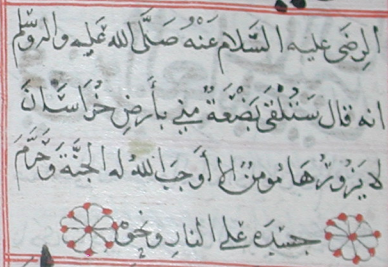 الرضى عليه السلام عنه صلى الله عليه واله وسلم
انه قال ستلقى بضعة مني بأرض خراسان
لا يزورها مومن الا أوجب الله له الجنة وحرم
جسده على النار ونحوه